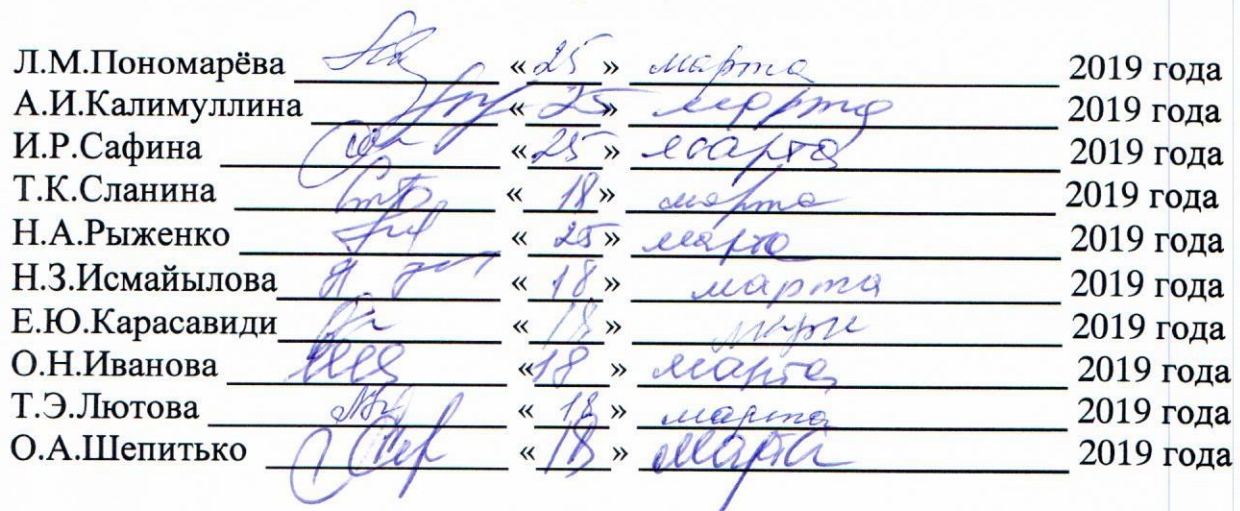 Л.М.Пономарёва «25» марта 2019 года
А.И.Калимуллина «25» марта 2019 года
И.Р.Сафина «25» марта 2019 года
Т.К.Сланина «18» марта 2019 года
Н.А.Рыженко «25» марта 2019 года
Н.З.Исмайылова «18» марта 2019 года
Е.Ю.Карасавиди «18» 2019 года
О.Н.Иванова «18» марта 2019 года
Т.Э.Лютова «18» марта 2019 года
О.А.Шепитько «18» марта 2019 года